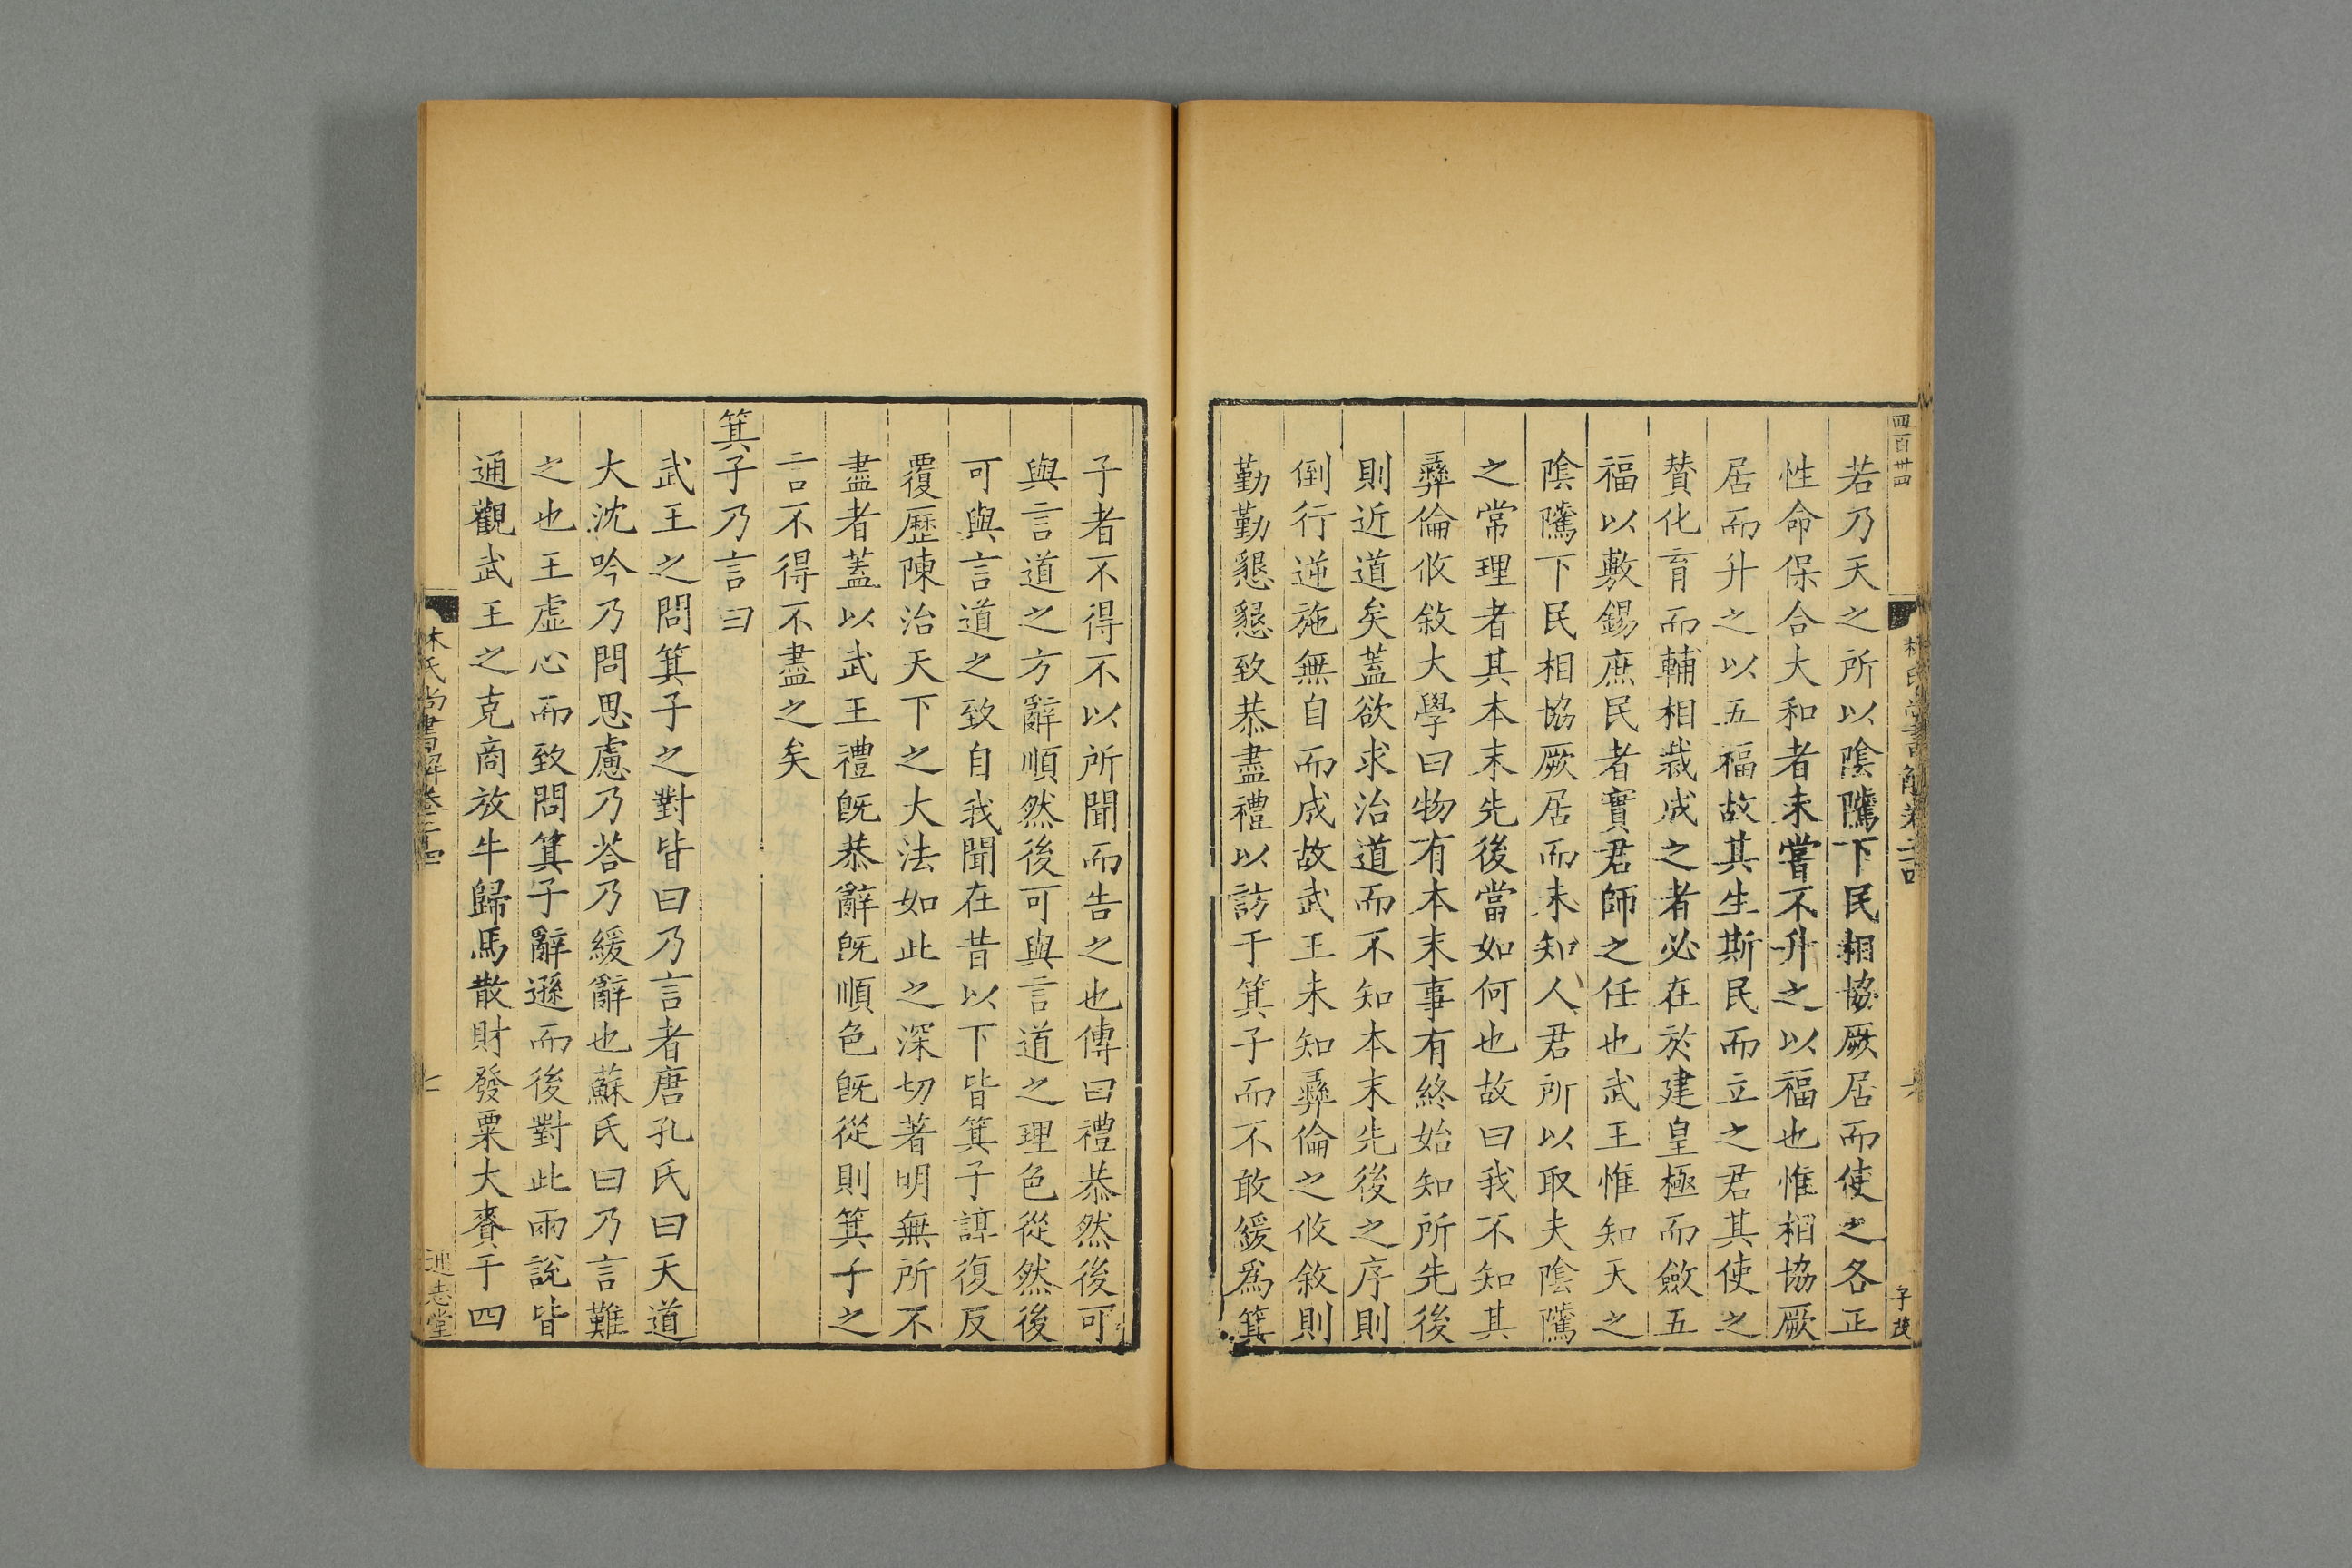 四百卅四
林氏尚書解卷二十四
子茂
若乃天之所以隂隲下民相協厥居而使之各正
性命保合大和者未嘗不升之以福也惟相協厥
居而升之以五福故其生斯民而立之君其使之
賛化育而輔相裁成之者必在於建皇極而斂五
福以敷錫庶民者實君師之任也武王惟知天之
隂隲下民相協厥居而未知人君所以取夫隂隲
之常理者其本末先後當如何也故曰我不知其
彞倫攸敘大學曰物有本末事有終始知所先後
則近道矣蓋欲求治道而不知本末先後之序則
倒行逆施無自而成故武王未知彞倫之攸敘則
勤勤懇懇致恭盡禮以訪于箕子而不敢緩爲箕
子者不得不以所聞而告之也傳曰禮恭然後可
與言道之方辭順然後可與言道之理色從然後
可與言道之致自我聞在昔以下皆箕子諄復反
覆歷陳治天下之大法如此之深切著明無所不
盡者蓋以武王禮旣恭辭旣順色旣從則箕子之
言不得不盡之矣
箕子乃言曰
武王之問箕子之對皆曰乃言者唐孔氏曰天道
大沈吟乃問思慮乃荅乃緩辭也蘇氏曰乃言難
之也王虛心而致問箕子辭遜而後對此兩說皆
通觀武王之克商放牛歸馬散財發粟大賚于四
林氏尚書解卷二十四
七
通志堂